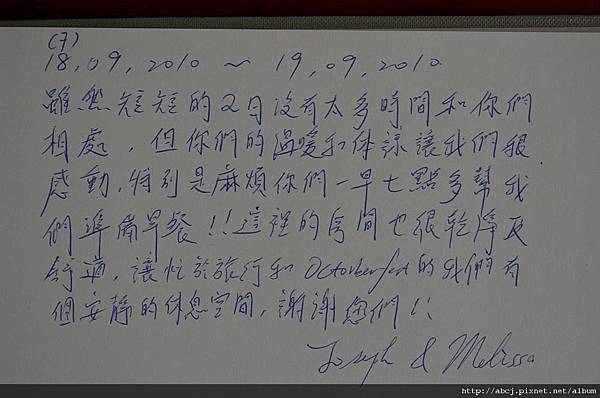 (7)
18,09,2010 ~ 19,09,2010
雖然短短的2日沒有太多時間和你們
相處，但你們的溫暖和体諒讓我們很
感動，特別是麻煩你們一早七點多幫我
們準備早餐!!這裡的房間也很乾淨及
舒適，讓忙於旅行和Octorberfest的我們有
個安靜的休息空間，謝謝您們!!
Joseph & Melissa
http://abcj.pixnet.net/album